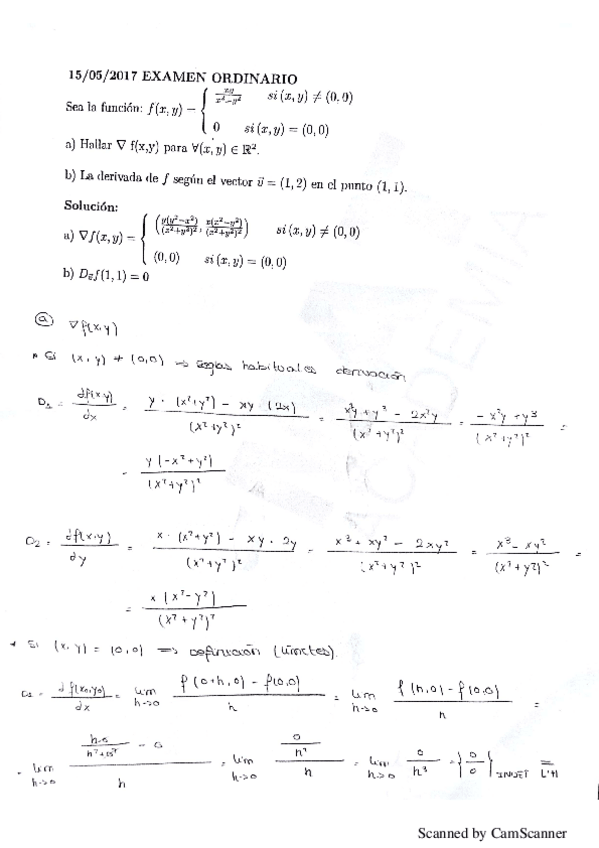 15/05/2017 EXAMEN ORDINARIO
Sea la función: f(x, y) = { xy / x²−y² si (x, y) ≠ (0, 0)
0 si (x, y) = (0, 0)
a) Hallar ∇ f(x,y) para ∀(x, y) ∈ ℝ².
b) La derivada de f según el vector u⃗ = (1, 2) en el punto (1, 1).
Solución:
a) ∇f(x, y) = { ( y(y²−x²) / (x²+y²)² , x(x²−y²) / (x²+y²)² ) si (x, y) ≠ (0, 0)
(0, 0) si (x, y) = (0, 0)
b) D_u⃗ f(1, 1) = 0
ⓐ ∇f(x,y)
* Si (x, y) ≠ (0,0) → reglas habituales derivación
D₁ = ∂f(x,y) / ∂x = y · (x²+y²) − xy · (2x) / (x²+y²)² = x²y + y³ − 2x²y / (x²+y²)² = −x²y + y³ / (x²+y²)² =
= y(−x²+y²) / (x²+y²)²
D₂ = ∂f(x,y) / ∂y = x · (x²+y²) − xy · 2y / (x²+y²)² = x³ + xy² − 2xy² / (x²+y²)² = x³ − xy² / (x²+y²)² =
= x(x²−y²) / (x²+y²)²
* Si (x,y) = (0,0) ⇒ Definición (límites).
D₁ = ∂f(x₀,y₀) / ∂x = lim h→0 f(0+h,0) − f(0,0) / h = lim h→0 f(h,0) − f(0,0) / h =
= lim h→0 h·0 / h²+0² − 0 / h = lim h→0 0 / h² / h = lim h→0 0 / h³ = {0/0} INDET = L'H
Scanned by CamScanner